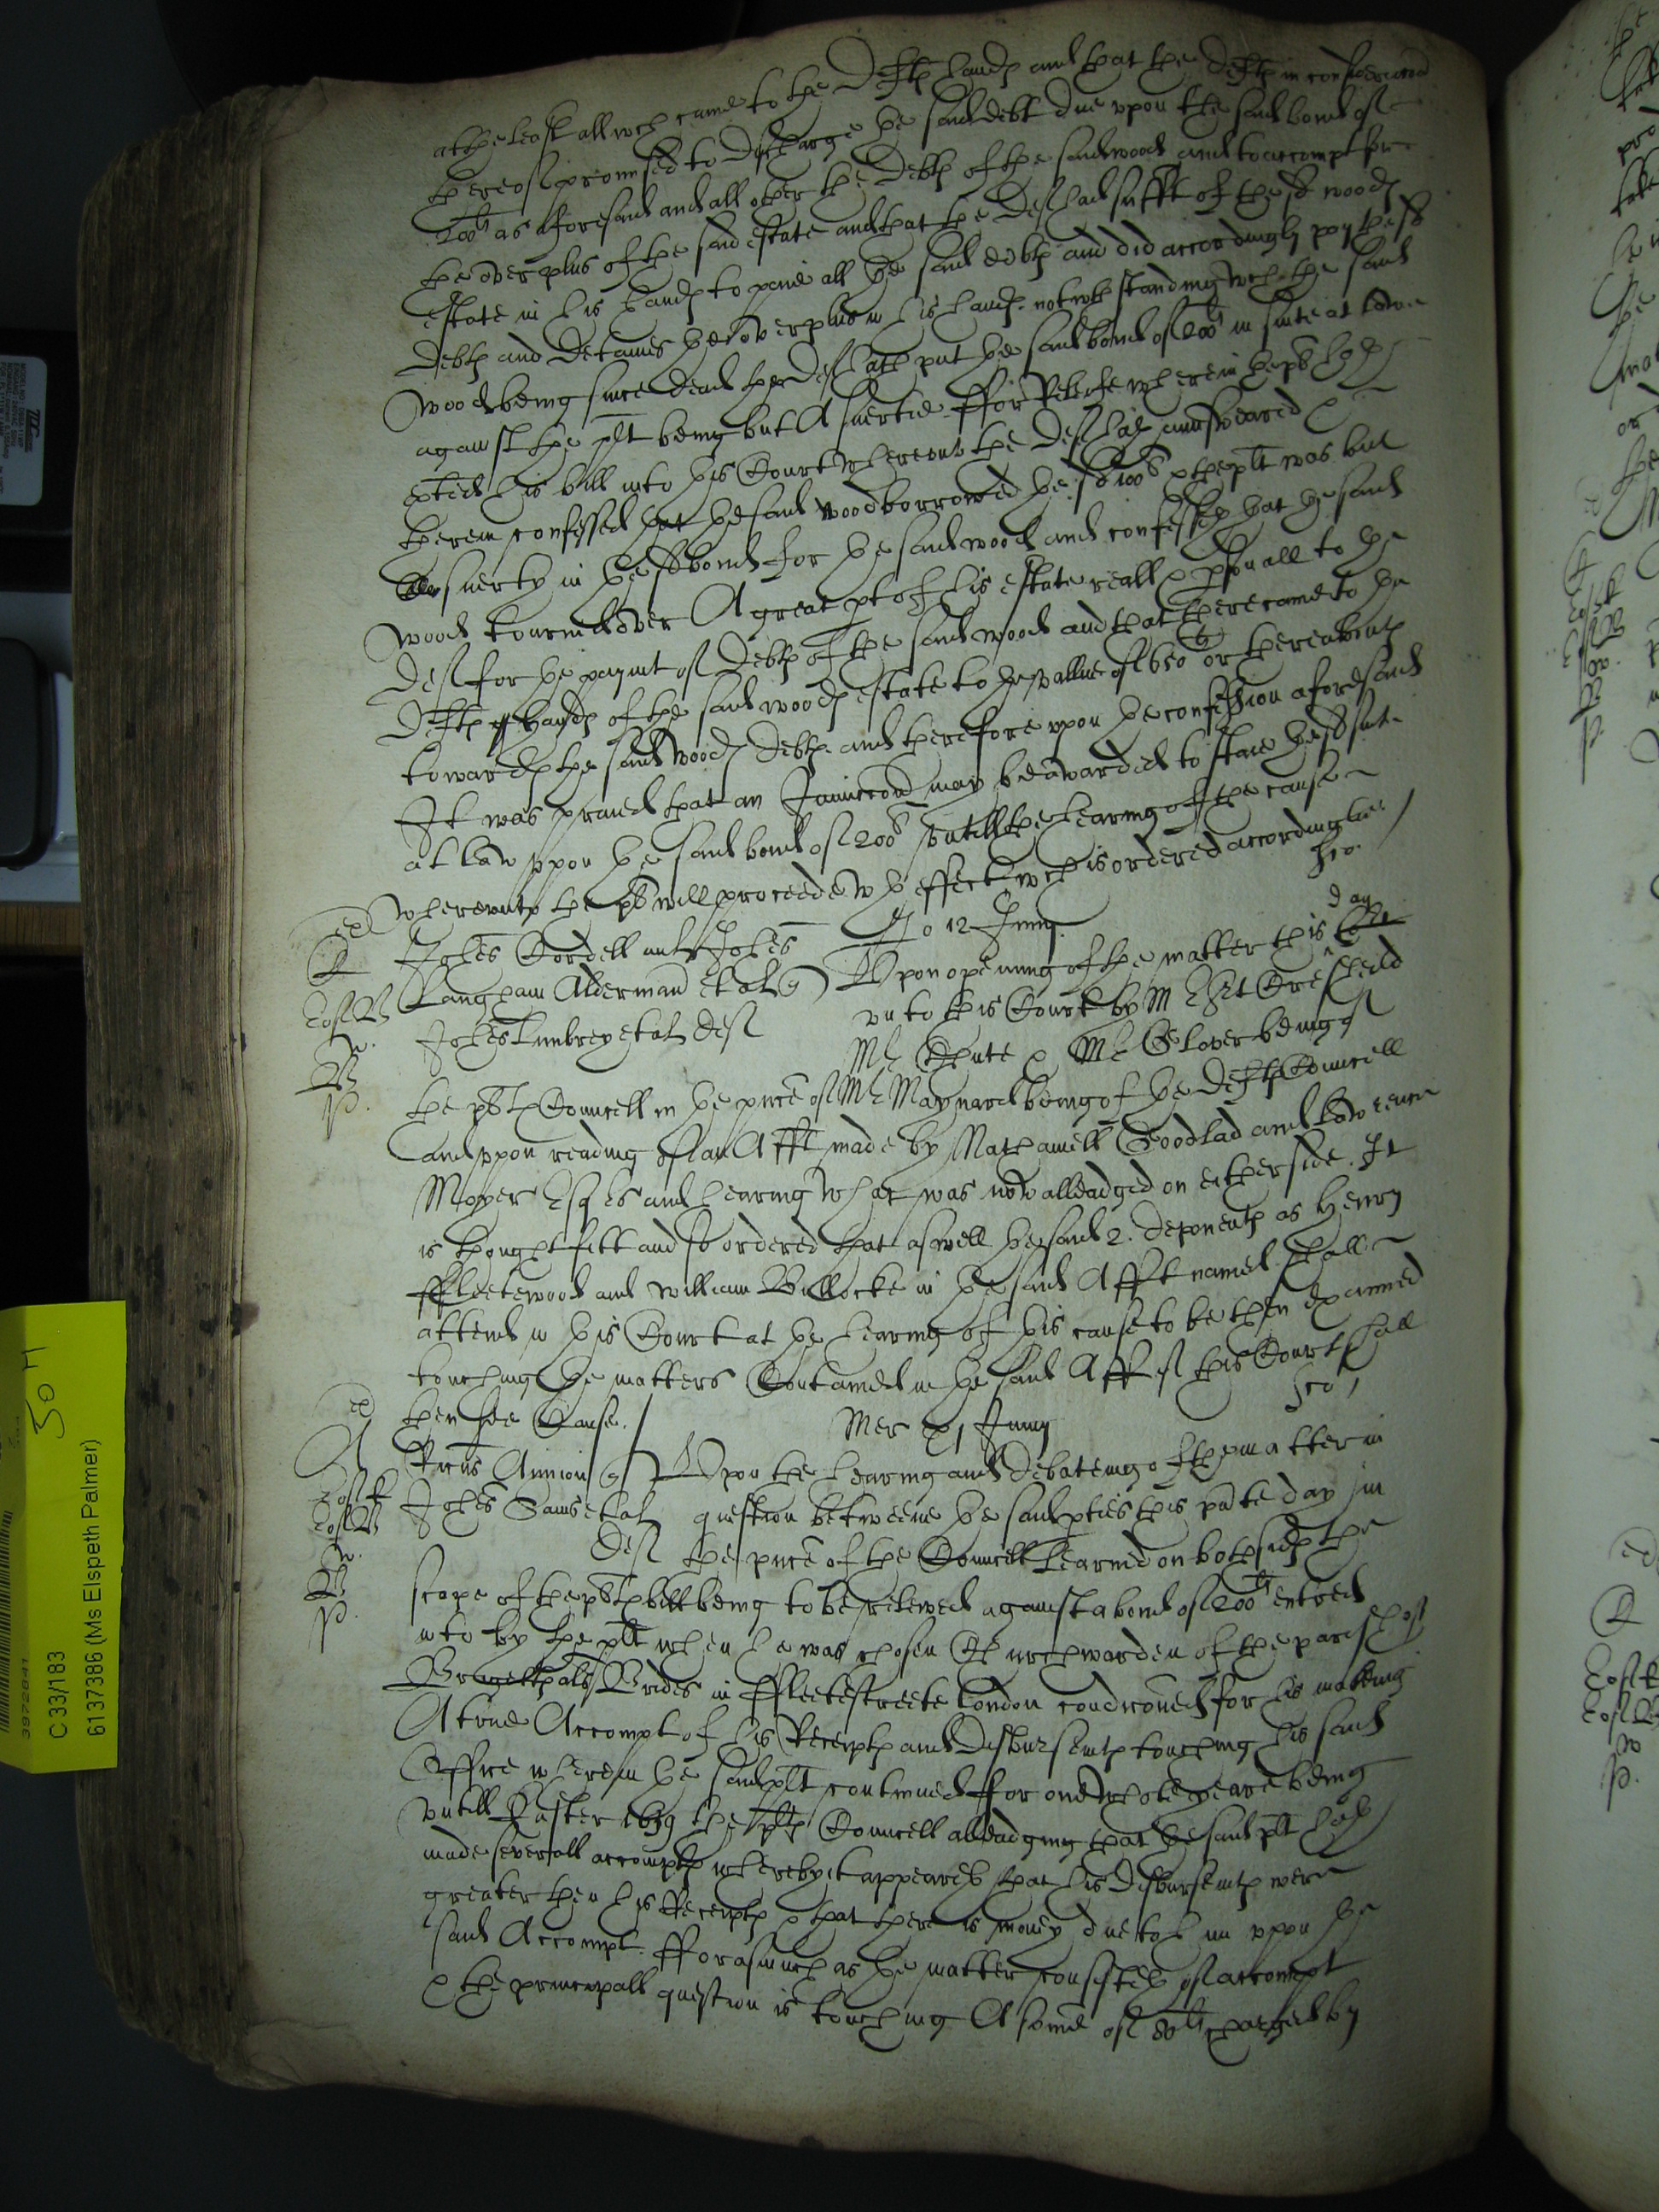 at the least all wch came to the Defts hands and that the defts in consideracon
thereof promised to discharge the said debt due upon the said bond of
200li as aforesaid and all other the Debts of the said wood and to accompt for
the overplus of the said estate and that the Def had sufft of the sd woods
estate in his hands to paie all the said debts and did accordingly pay the sd
Debts and Detaines the overplus in his hands. notwthstanding wch the said
Wood being since dead the Def hath put the said bond of 200li in suite at lawe
against the plt being but A suertie ffor Releife wherein the pl hath
exhted his bill into this Court whereunto the Def hath aunsweared
therein confessed that the said Wood borrowed the sd 100li & the plt was but
suerty in the sd bond for the said wood and confesseth that the said
wood tourned over A great pt of his estate reall & psonall to the
Def for the paymt of Debts of the said wood and that there came to the
Defts hands of the said woods estate to the vallue of 650li or thereabouts
towards the said Woods Debts and therefore upon the confession aforesaid
It was praied that an Iniunccon may be awarded to staie the sd suit
at law upon the said bond of 200li untill the hearing of the cause
Whereunto the pl will proceede wth effect wch is ordered accordinglie /
Jo 12 Junij
Johes Cordell mil Johes
Langham Alderman et al q
Johes Lambrey et al Def
Upon opening of the matter this day
unto this Court by Mr Sit Cresheld
Mr Chute & Mr Glover being of
the pl Councell in the pnce of Mr Maynard being of the Defts Councell
and upon reading of an Afft made by Nathaniell Goodlad and Lawrence
Moyer Esqrs and hearing what was now alleadged on either side. It
is thought fitt and so ordered that aswell the said 2. deponents as Henry
ffleetewood and William Bullocke in the said Afft named shall
attend in this Court at the hearing of this cause to be then examined
touching the matters Contained in the said Afft if this Court shall
then see Cause. /
Mer Junij
Ricus Annion q
Johes Sams et al
Def
Upon the hearing and Debateing of the matter in
question betweene the said pties this pnte day in
the pnce of the Councell learned on both sides the
scope of the plts bill being to be releived against a bond of 200li entred
into by the plt when he was chosen Churchwarden of the parish of
Brigetts als Brides in ffleetestreete London condiconed for his making
A true Accompt of his Receipts and Disbursemts touching his said
Office wherein the said plt continued ffor one whole yeare being
untill Easter 1639 the plts Councell alleadging that the said plt hath
made severall accompts whereby it appeareth that his Disbursemts were
greater then his Receipts & that there is money due to him upon the
said Accompt. fforasmuch as the matter consisteth of accompt
& the principall question is touching A some of 80li charged by
C 33/183
6137386 (Ms Elspeth Palmer)